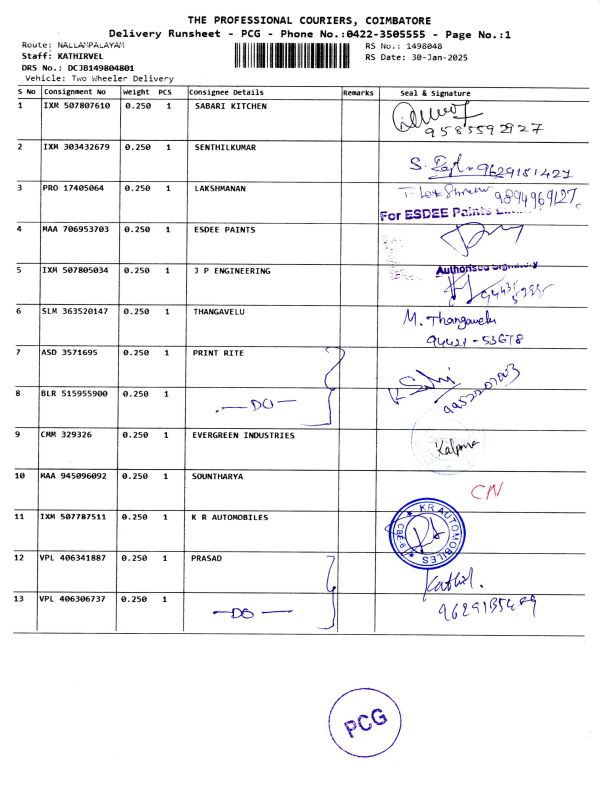 THE PROFESSIONAL COURIERS, COIMBATORE
Delivery Runsheet - PCG - Phone No.:0422-3505555 - Page No.:1
Route: NALLAMPALAYAM
RS No.: 1498048
Staff: KATHIRVEL
RS Date: 30-Jan-2025
DRS No.: DCJB149804801
Vehicle: Two Wheeler Delivery
S No Consignment No Weight PCS Consignee Details Remarks Seal & Signature
1 IXM 507807610 0.250 1 SABARI KITCHEN
9585592927
2 IXM 303432679 0.250 1 SENTHILKUMAR
9629151427
3 PRO 17405064 0.250 1 LAKSHMANAN
9894969127
For ESDEE Paints
4 MAA 706953703 0.250 1 ESDEE PAINTS
Authorised Signatory
5 IXM 507805034 0.250 1 J P ENGINEERING
6 SLM 363520147 0.250 1 THANGAVELU M. Thangavelu
94421-53678
7 ASD 3571695 0.250 1 PRINT RITE
8 BLR 515955900 0.250 1 —DO—
9 CMM 329326 0.250 1 EVERGREEN INDUSTRIES Kalpana
10 MAA 945096092 0.250 1 SOUNTHARYA CN
11 IXM 507787511 0.250 1 K R AUTOMOBILES KR AUTOMOBILES CBE-6
12 VPL 406341887 0.250 1 PRASAD
13 VPL 406306737 0.250 1 —DO—
PCG